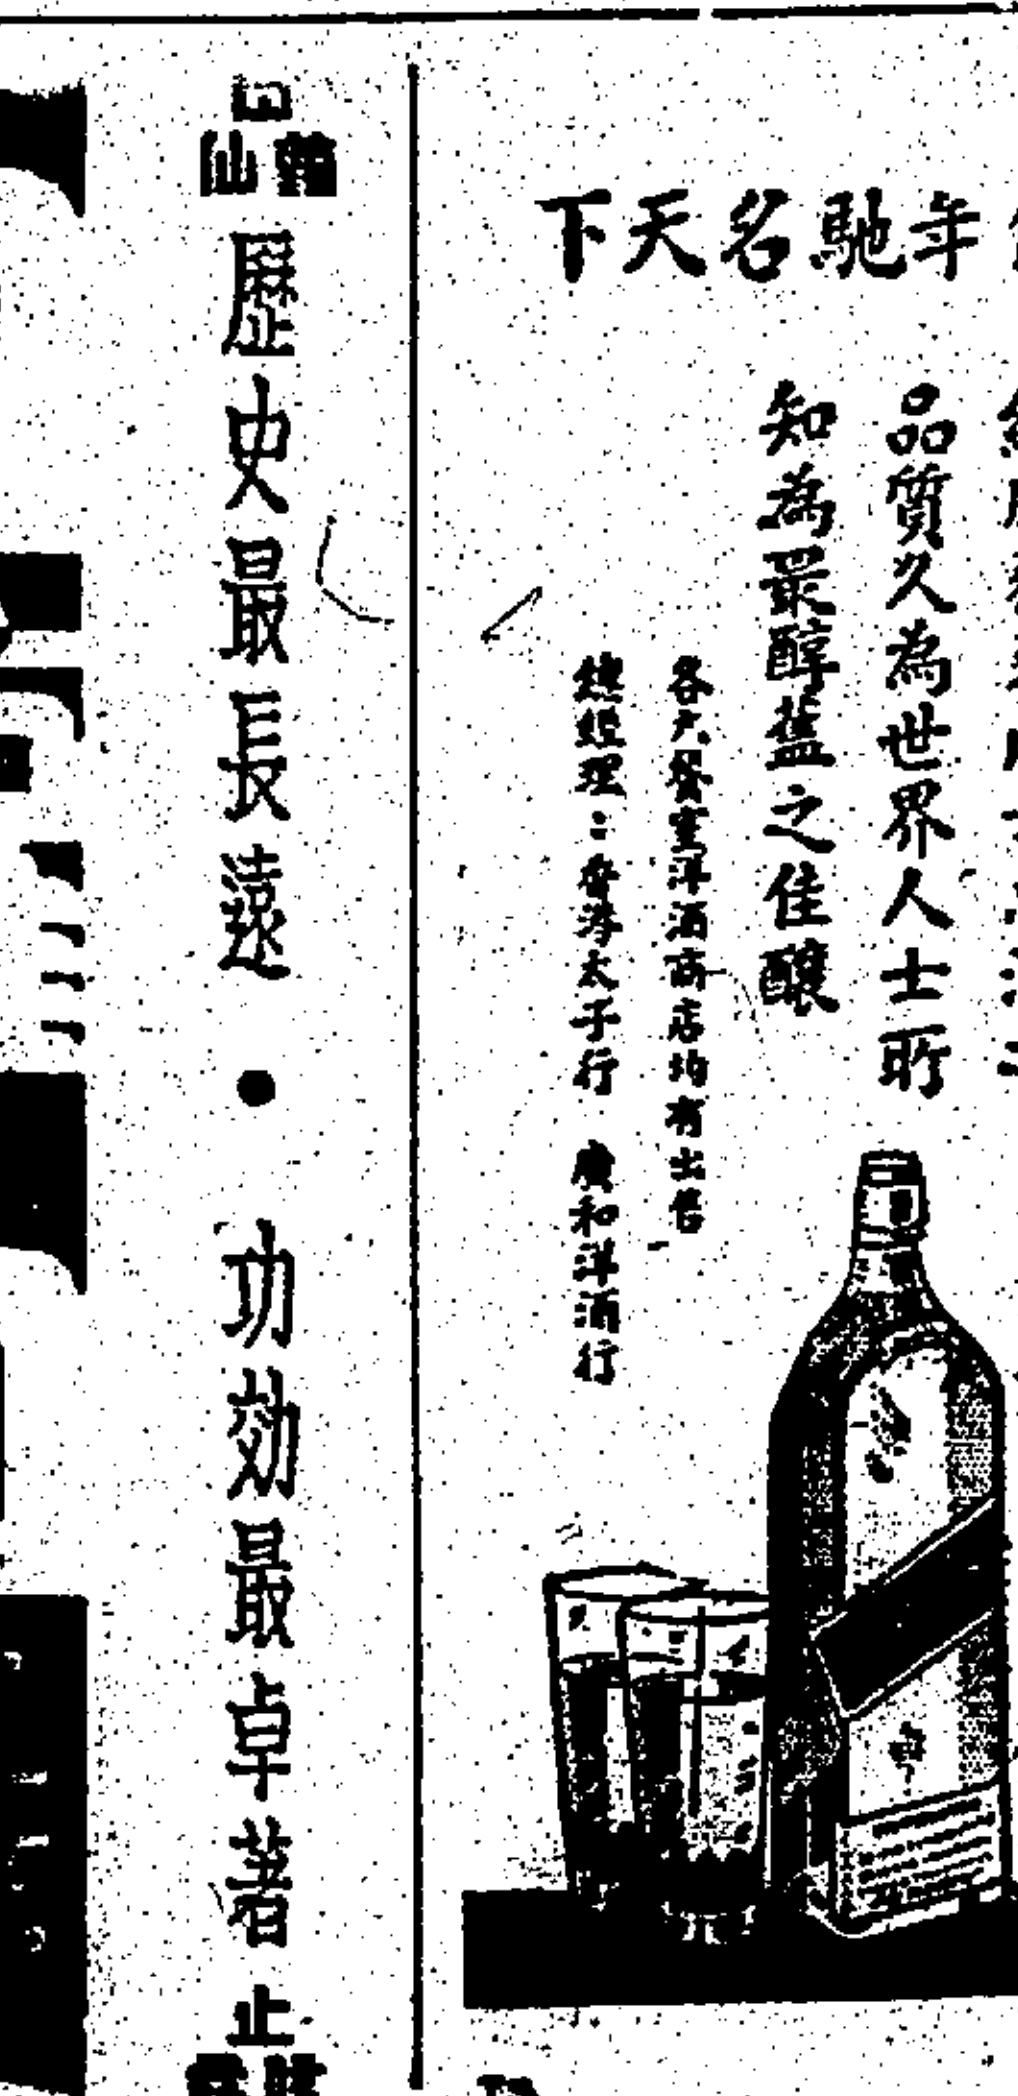 年馳名天下
品質久為世界人士所
知為最醇舊之佳釀
各大餐室洋酒商店均有出售
總經理：香港太子行 廣和洋酒行
歷史最長遠 • 功効最卓著
止